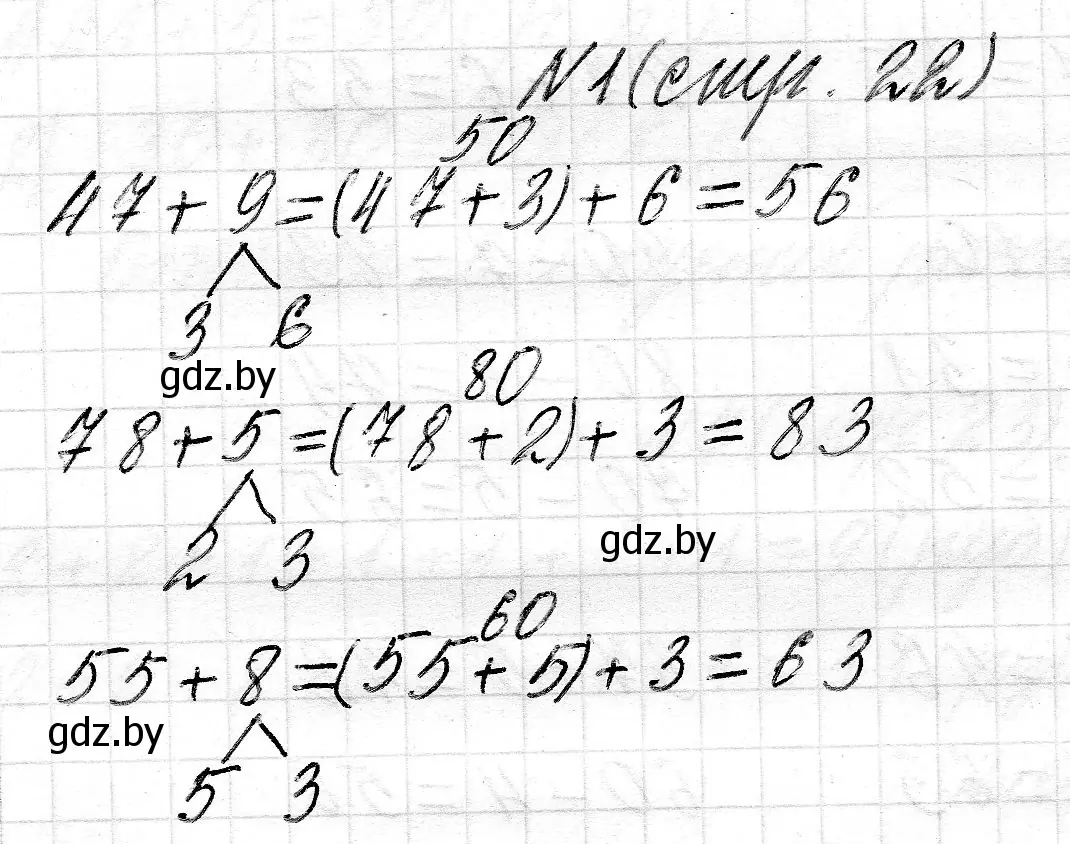 N1 (стр. 22)
50
47 + 9 = (47 + 3) + 6 = 56
3 6
gdz.by
80
78 + 5 = (78 + 2) + 3 = 83
2 3
gdz.by
60
55 + 8 = (55 + 5) + 3 = 63
gdz.by
5 3